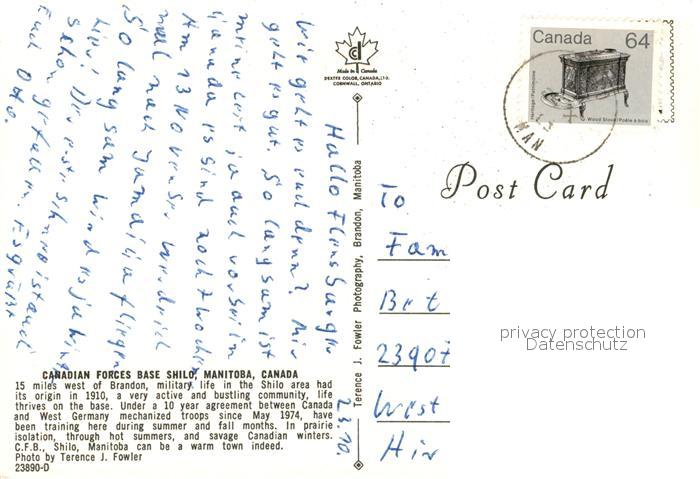 Canada 64
Heritage / Patrimoine
Wood Stove / Poêle à bois
MAN
Made in Canada
DEXTER COLOR, CANADA, LTD.
CORNWALL, ONTARIO
Post Card
Hallo Flensburger
wie geht es euch denn? Mir
geht es gut. So langsam ist
meine Zeit ja auch vorbei in
Canada es sind noch 2 Wochen
Am 13 November werde ich
mal nach Jamaica fliegen
So langsam wird es ja hier
Der erste Schnee ist auch
schon gefallen. Es grüßt
Euch Otto.
23.10.
To
Fam
23907
West
Terence J. Fowler Photography, Brandon, Manitoba
privacy protection
Datenschutz
CANADIAN FORCES BASE SHILO, MANITOBA, CANADA
15 miles west of Brandon, military life in the Shilo area had
its origin in 1910, a very active and bustling community, life
thrives on the base. Under a 10 year agreement between Canada
and West Germany mechanized troops since May 1974, have
been training here during summer and fall months. In prairie
isolation, through hot summers, and savage Canadian winters.
C.F.B., Shilo, Manitoba can be a warm town indeed.
Photo by Terence J. Fowler
23890-D